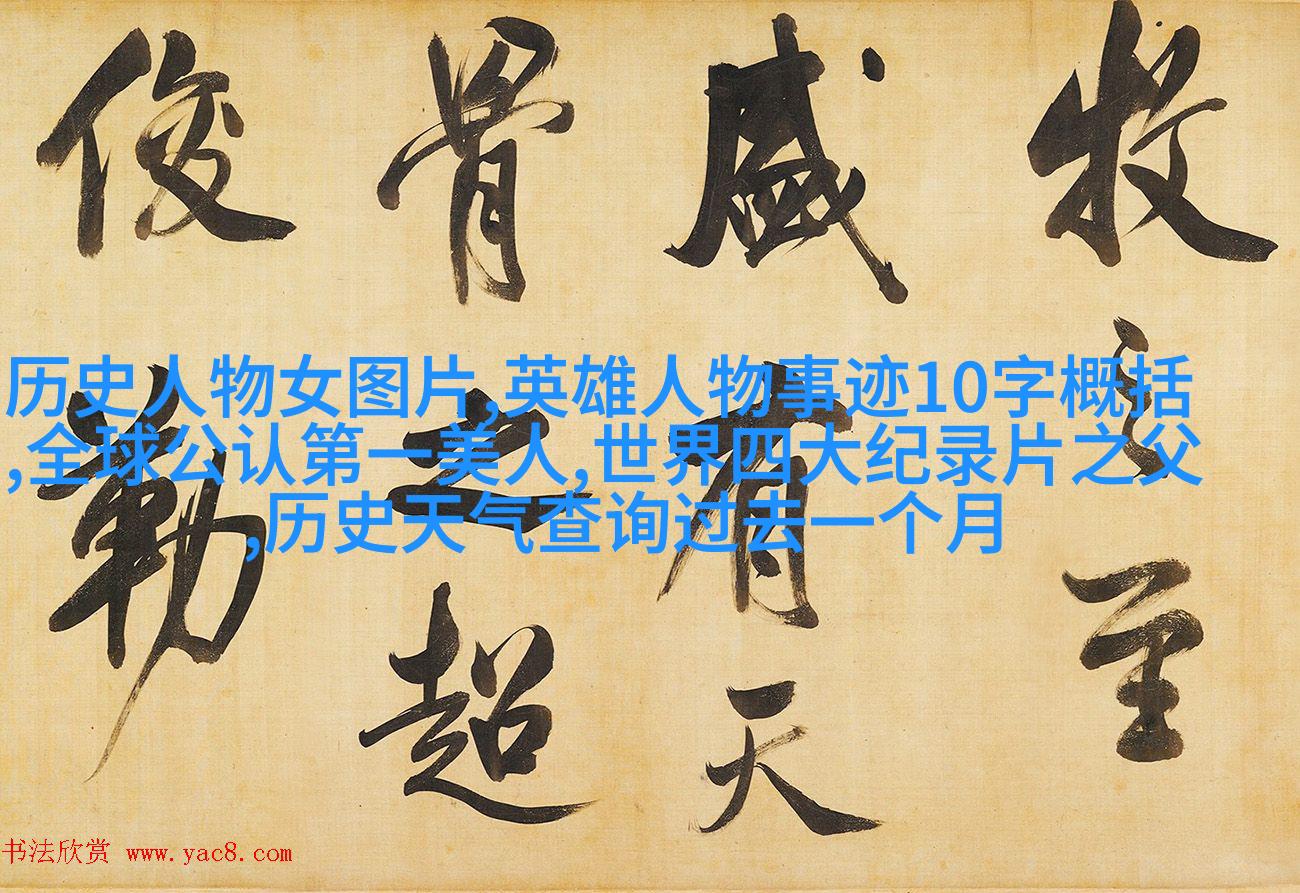 牧之至
盛有天
骨之超
俊勒
历史人物女图片,英雄人物事迹10字概括
,全球公认第一美人,世界四大纪录片之父
,历史天气查询过去一个月
书法欣赏 www.yac8.com